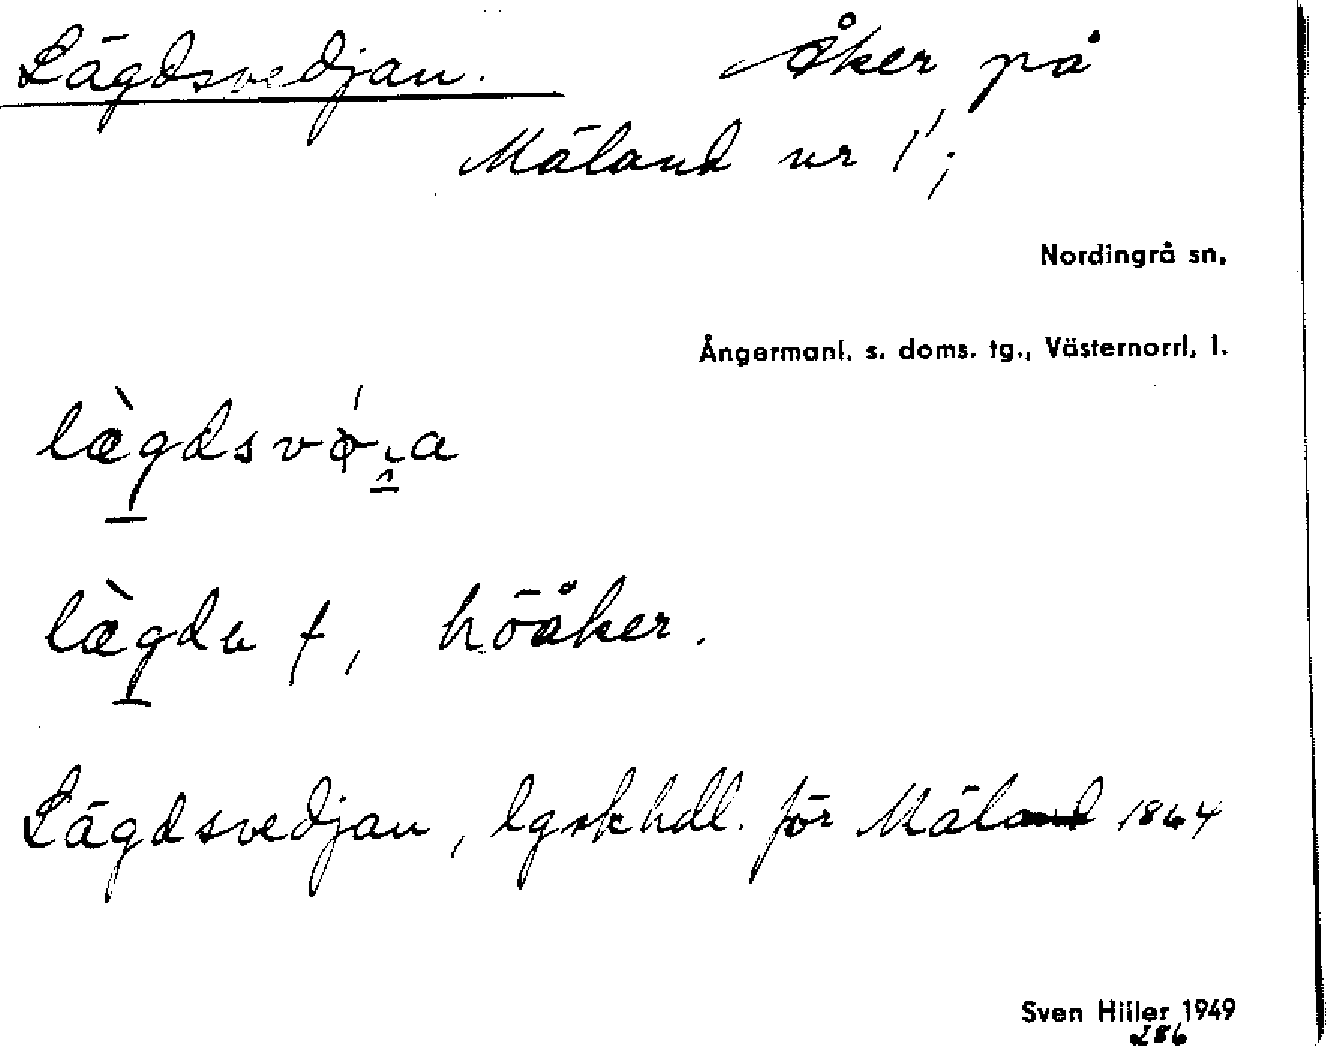 Lägdsvedjan. Åker på
Mäland nr 1¹;
Nordingrå sn,
Ångermanl. s. doms. tg., Västernorrl, l.
lägda f, höåker.
Lägdsvedjan, lgskhdl. för Mäland 1864
Sven Hiller 1949
286